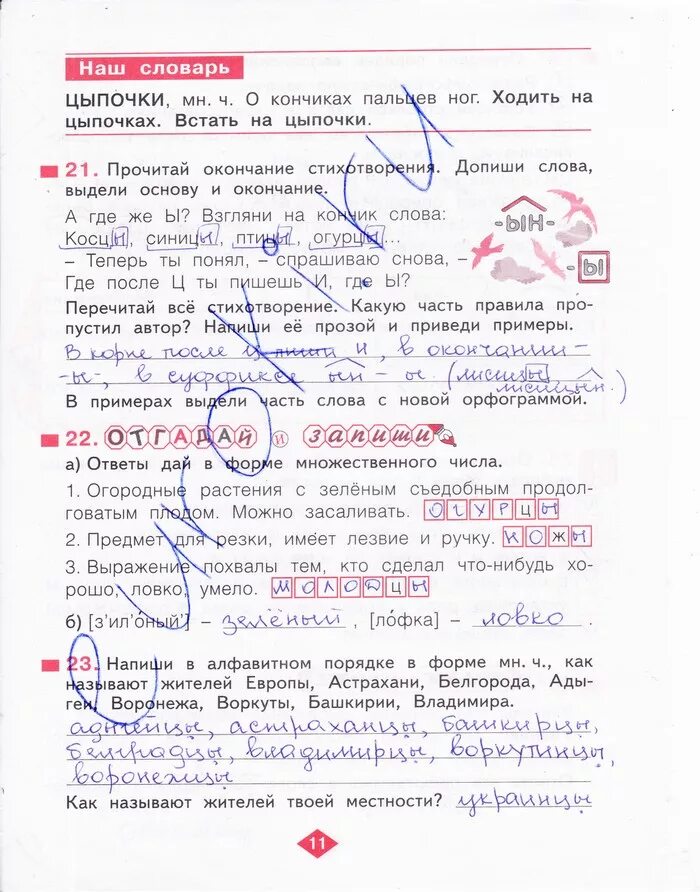 Наш словарь
ЦЫПОЧКИ, мн. ч. О кончиках пальцев ног. Ходить на
цыпочках. Встать на цыпочки.
21. Прочитай окончание стихотворения. Допиши слова,
выдели основу и окончание.
А где же Ы? Взгляни на кончик слова:
Косцы, синицы, птицы, огурцы...
-ын-
– Теперь ты понял, – спрашиваю снова, –
-ы
Где после Ц ты пишешь И, где Ы?
Перечитай всё стихотворение. Какую часть правила про-
пустил автор? Напиши её прозой и приведи примеры.
В корне после ц пиши и, в окончании -
-ы-, в суффиксе ын - ы. (лисицы,
лисицын.)
В примерах выдели часть слова с новой орфограммой.
22. ОТГАДАЙ и запиши
а) Ответы дай в форме множественного числа.
1. Огородные растения с зелёным съедобным продол-
говатым плодом. Можно засаливать. ОГУРЦЫ
2. Предмет для резки, имеет лезвие и ручку. НОЖЫ
3. Выражение похвалы тем, кто сделал что-нибудь хо-
рошо, ловко, умело. МОЛОДЦЫ
б) [з'ил'о́ный'] – зелёный, [ло́фка] – ловко.
23. Напиши в алфавитном порядке в форме мн. ч., как
называют жителей Европы, Астрахани, Белгорода, Ады-
геи, Воронежа, Воркуты, Башкирии, Владимира.
адыгейцы, астраханцы, башкирцы,
белградцы, владимирцы, воркутинцы,
воронежцы
Как называют жителей твоей местности? украинцы
11